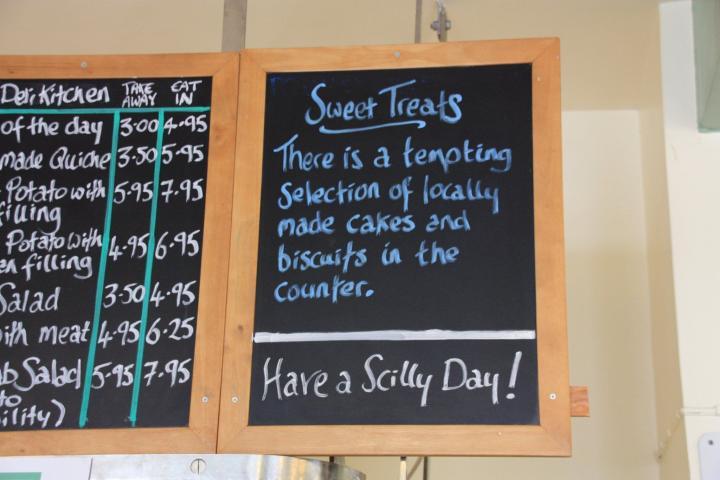 Deri Kitchen TAKE AWAY EAT IN
of the day 3.00 4.95
made Quiche 3.50 5.95
Potato with 5.95 7.95
filling
Potato with 4.95 6.95
en filling
Salad 3.50 4.95
with meat 4.95 6.25
ab Salad 5.95 7.95
to
ility)
Sweet Treats
There is a tempting
selection of locally
made cakes and
biscuits in the
counter.
Have a Scilly Day!